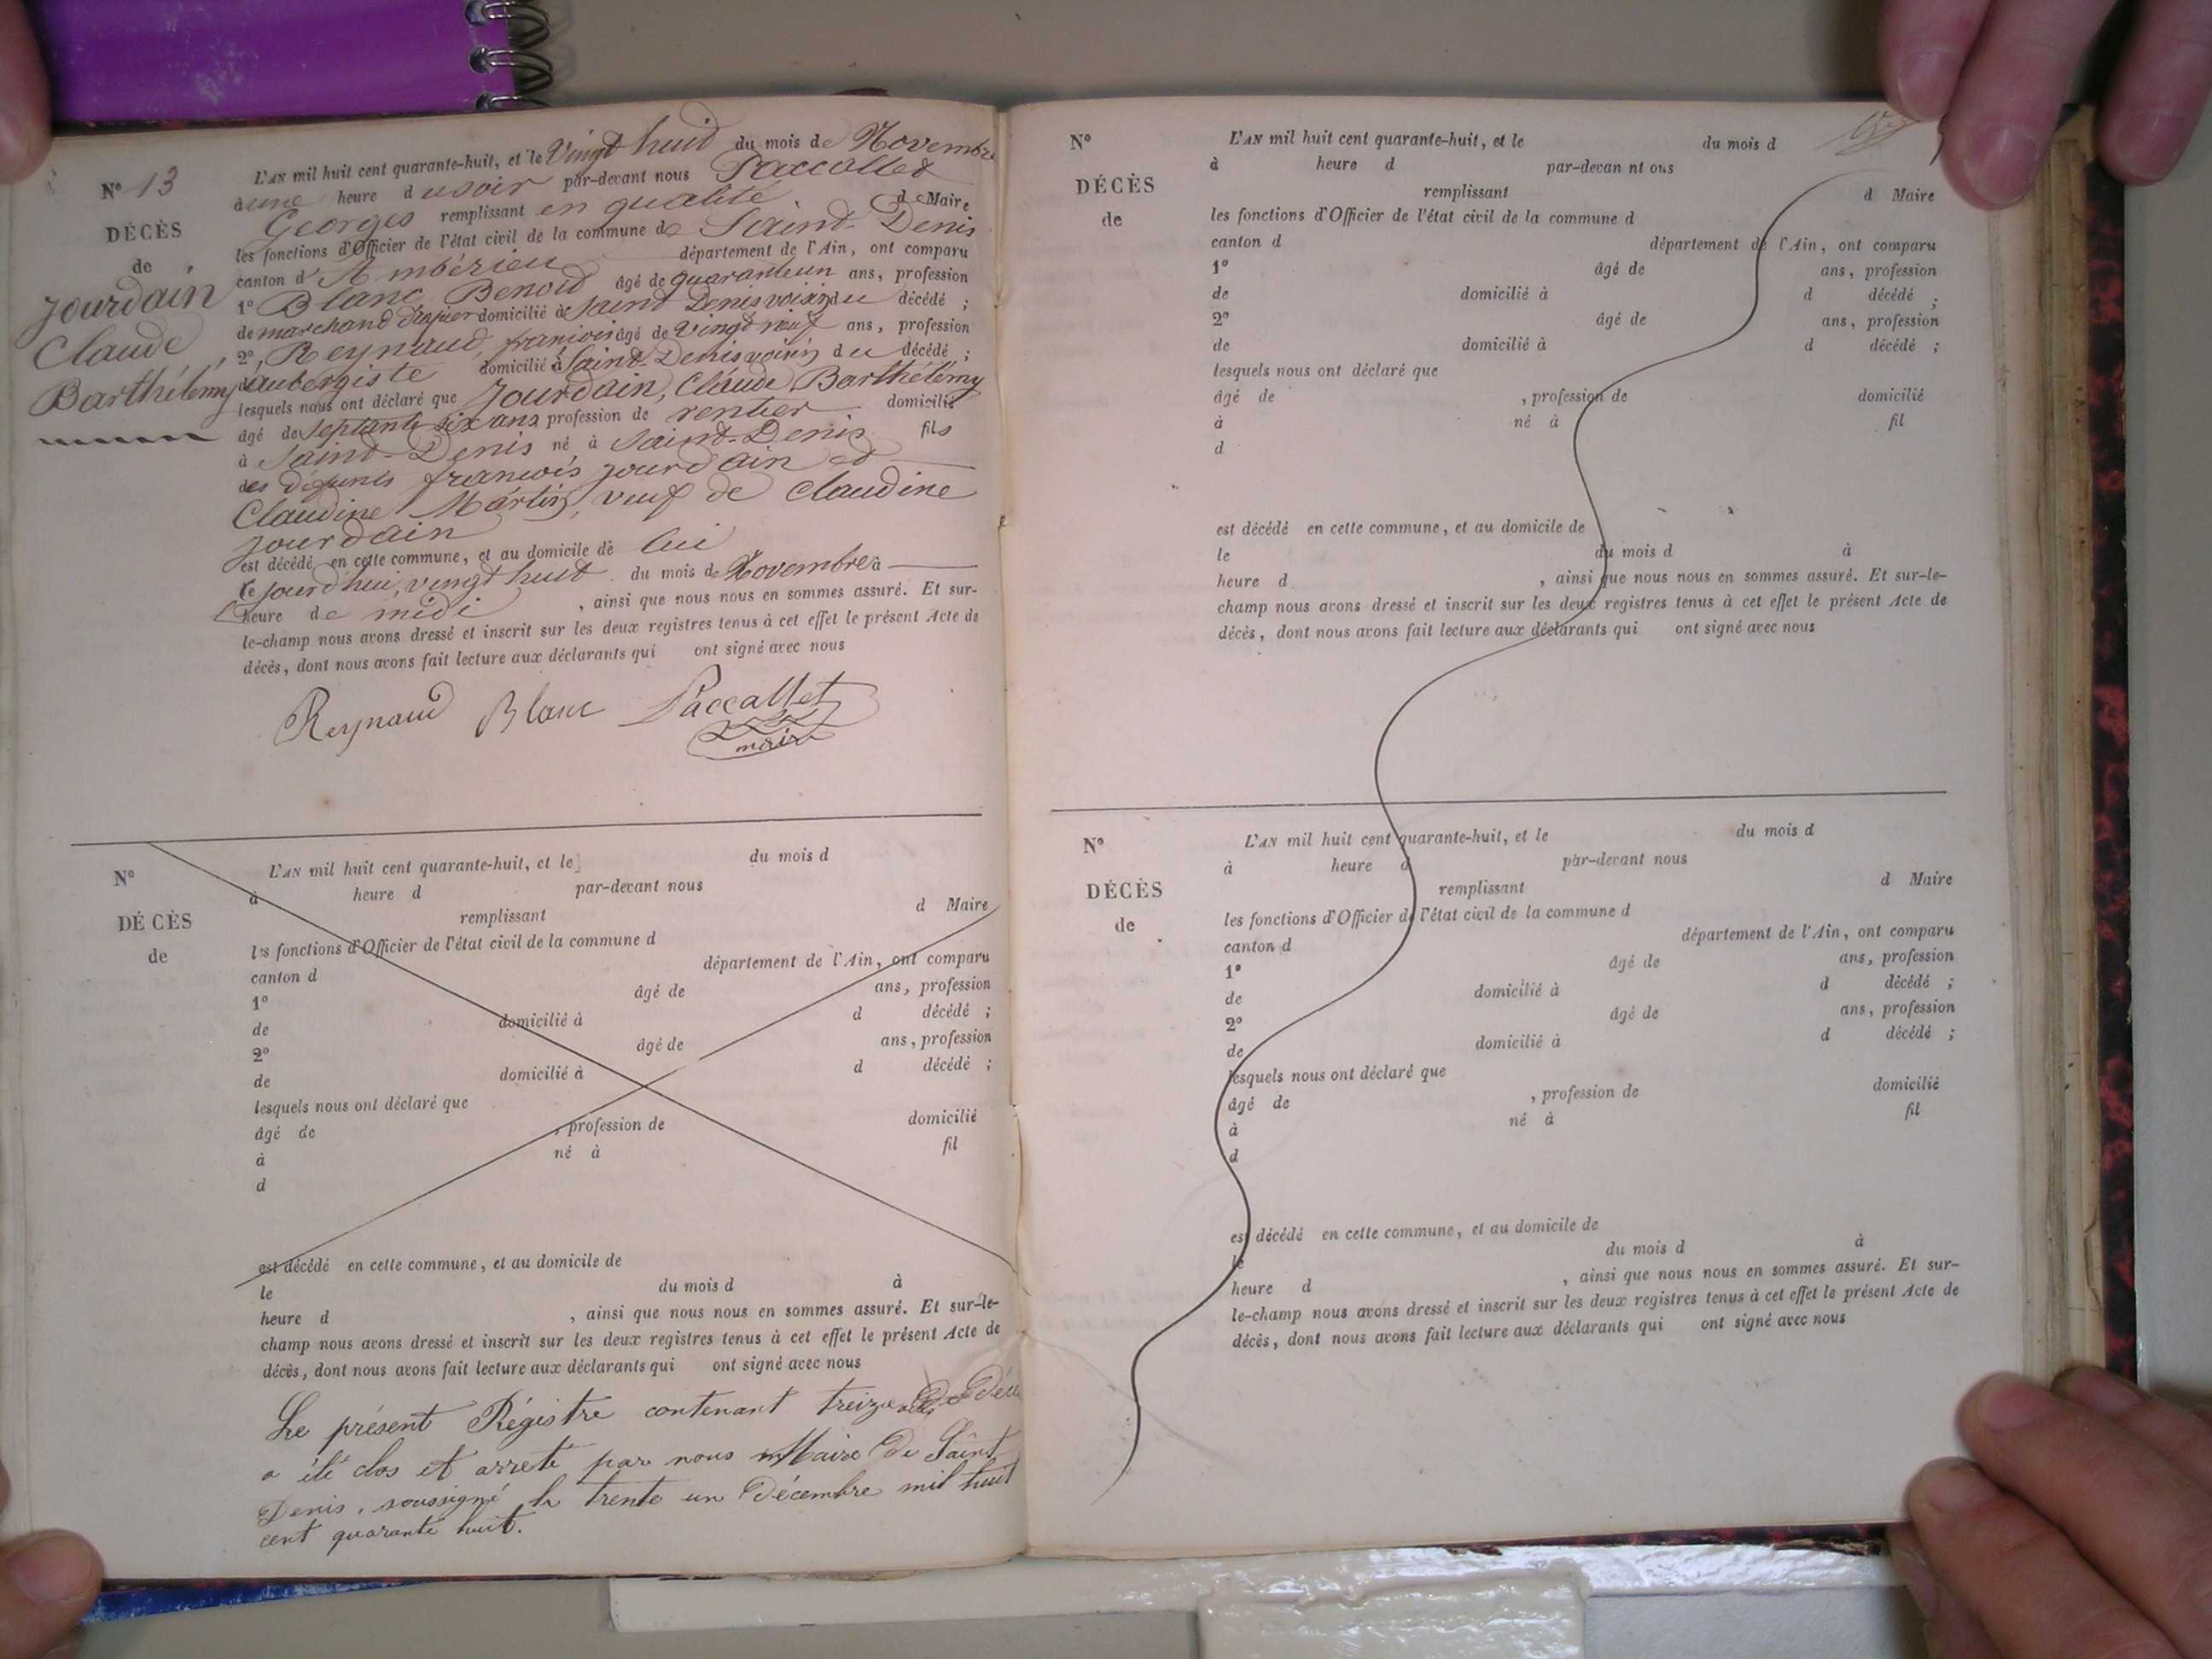 N° 13
DÉCÈS
de
Jourdain
Claude
Barthélémy
L'AN mil huit cent quarante-huit, et le Vingt huit du mois de Novembre
à une heure d u soir par-devant nous Paccallet
Georges remplissant en qualité d e Maire
les fonctions d'Officier de l'état civil de la commune de Saint-Denis
canton d' Ambérieu département de l'Ain, ont comparu
1° Blanc Benoit âgé de quarante un ans, profession
de marchand drapier domicilié à Saint Denis voisin du décédé ;
2° Reynaud, francois âgé de vingt neuf ans, profession
d'aubergiste domicilié à Saint-Denis voisin du décédé ;
lesquels nous ont déclaré que Jourdain, Claude, Barthélémy
âgé de septante six ans profession de rentier domicilié
à Saint-Denis né à Saint-Denis fils
des défunts francois jourdain et
Claudine Martin, veuf de Claudine
jourdain
est décédé en cette commune, et au domicile de lui
ce jourd'hui, vingt huit du mois de Novembre à
heure de midi , ainsi que nous nous en sommes assuré. Et sur-
le-champ nous avons dressé et inscrit sur les deux registres tenus à cet effet le présent Acte de
décès, dont nous avons fait lecture aux déclarants qui ont signé avec nous
Reynaud Blanc Paccallet
maire
N°
DÉCÈS
de
L'AN mil huit cent quarante-huit, et le du mois d
à heure d par-devant nous
remplissant d Maire
les fonctions d'Officier de l'état civil de la commune d
canton d département de l'Ain, ont comparu
1° âgé de ans, profession
de domicilié à d décédé ;
2° âgé de ans, profession
de domicilié à d décédé ;
lesquels nous ont déclaré que
âgé de , profession de domicilié
à né à fil
d
est décédé en cette commune, et au domicile de
le du mois d à
heure d , ainsi que nous nous en sommes assuré. Et sur-le-
champ nous avons dressé et inscrit sur les deux registres tenus à cet effet le présent Acte de
décès, dont nous avons fait lecture aux déclarants qui ont signé avec nous
Le présent Régistre contenant treize
a été clos et arreté par nous Maire De Saint
Denis, soussigné le trente un Décembre mil huit
cent quarante huit.
N°
DÉCÈS
de
L'AN mil huit cent quarante-huit, et le du mois d
à heure d par-devan nt ous
remplissant d Maire
les fonctions d'Officier de l'état civil de la commune d
canton d département de l'Ain, ont comparu
1° âgé de ans, profession
de domicilié à d décédé ;
2° âgé de ans, profession
de domicilié à d décédé ;
lesquels nous ont déclaré que
âgé de , profession de domicilié
à né à fil
d
est décédé en cette commune, et au domicile de
le du mois d à
heure d , ainsi que nous nous en sommes assuré. Et sur-le-
champ nous avons dressé et inscrit sur les deux registres tenus à cet effet le présent Acte de
décès, dont nous avons fait lecture aux déclarants qui ont signé avec nous
N°
DÉCÈS
de
L'AN mil huit cent quarante-huit, et le du mois d
à heure d par-devant nous
remplissant d Maire
les fonctions d'Officier de l'état civil de la commune d
canton d département de l'Ain, ont comparu
1° âgé de ans, profession
de domicilié à d décédé ;
2° âgé de ans, profession
de domicilié à d décédé ;
lesquels nous ont déclaré que
âgé de , profession de domicilié
à né à fil
d
est décédé en cette commune, et au domicile de
le du mois d à
heure d , ainsi que nous nous en sommes assuré. Et sur-
le-champ nous avons dressé et inscrit sur les deux registres tenus à cet effet le présent Acte de
décès, dont nous avons fait lecture aux déclarants qui ont signé avec nous